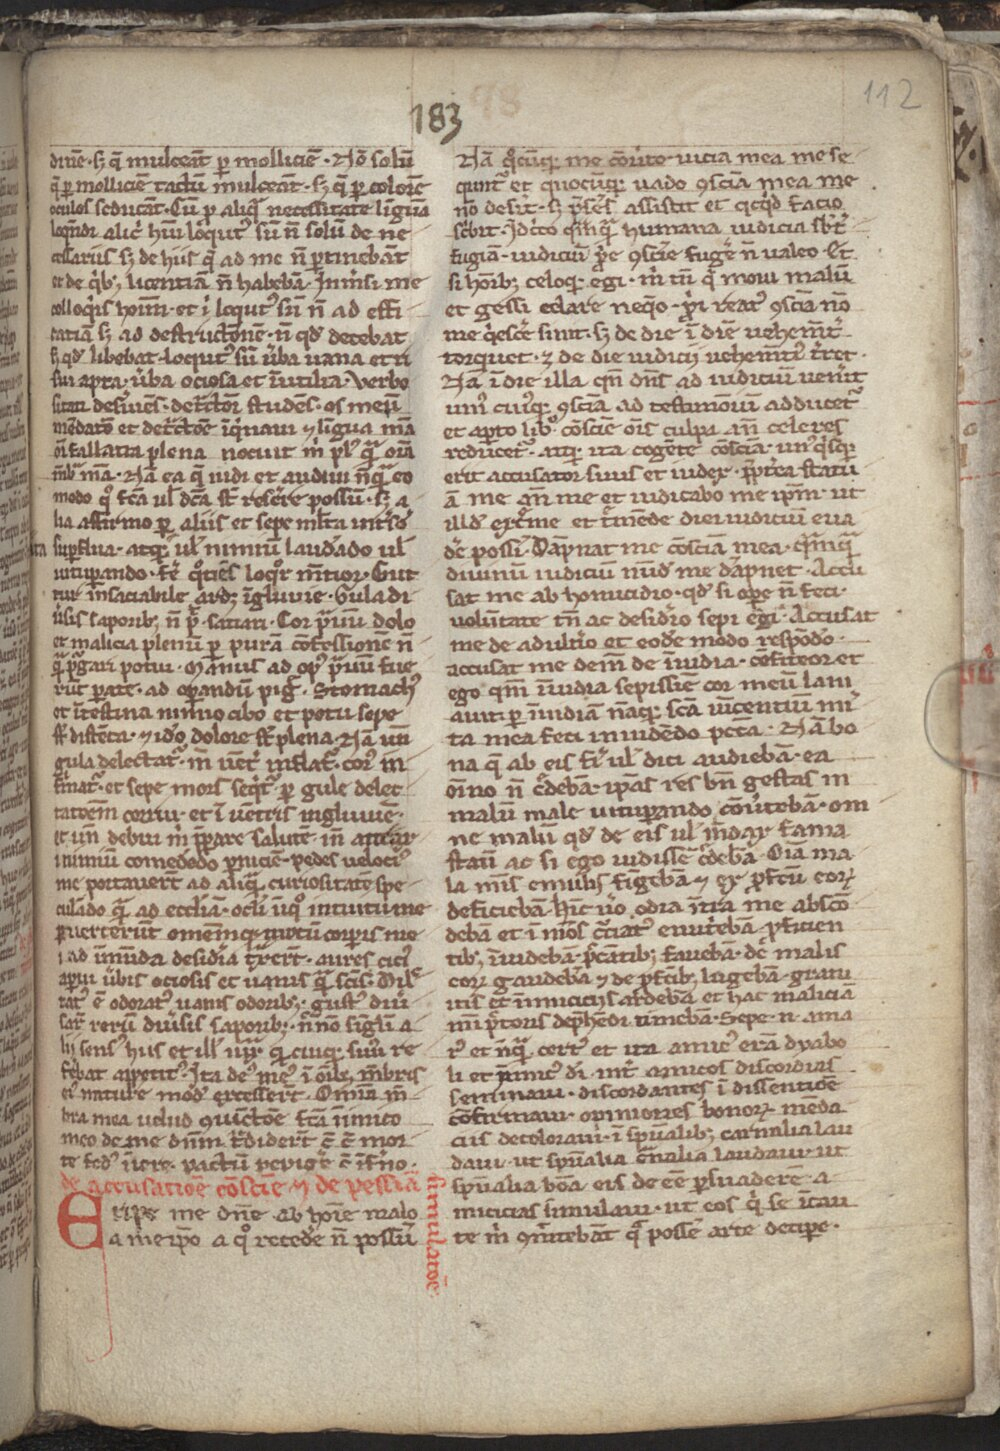 183
112
diuē· sꝫ q̄ mulceāt ꝑ molliciē· Nō solū
q̄ ꝑ molliciē tactū mulceāt· sꝫ q̄ ꝑ colorē
oculos seducāt· Cū ꝑ aliq̄ necessitate linguā
loquendi alic̓ hui locutꝰ sū n̄ solū de ne
cessariis sꝫ de hiis q̄ ad me n̄ ꝑtinebāt
et de qͥbꝫ licentiā n̄ habebā· Inmisi me
colloqͥis hoīm· et ī locutꝰ sū n̄ ad effi
catiā sꝫ ad destructōnē· n̄ qd̓ decebat
sꝫ qd̓ libebat· locutꝰ sū ūba uana et ri
sui apta· ūba ociosa et īutilia· Verbo
sitati deſuiēs· det̓ctōi studēs· os meū
mēdatō et det̓ctōe īqͥnaui ⁊ ligua mā
oī fallatia plena nocuit m̄ plꝰ qͣ oīa
mēbͣ mā· Nā ea q̄ uidi et audiui nūqͣ eo
modo qͦ fc̄a ul̓ dc̄a st̄ referre possū· sꝫ a
lia affirmo ꝑ aliis et sepe ml̄ta int̓ſo
suꝑflua· atqꝫ ul̓ nimiū laudādo ul̓
uituꝑando· fē qͦciēs loqͦr mētior· Gut
tur insaciabile ardꝫ īgluuie· Gula di
ūsis saporibꝫ n̄ pͭ satiari· Cor pͣuū dolo
et malicia plenū ꝑ purā cōfessionē n̄
qͣ pͥgari potui· Manus ad opꝰ pͣuū fue
rūt pate· ad oꝑandū pigͤ· Stomachꝰ
et ītestina nimio cibo et potu sepe
st̄ distēta· ⁊ ido̓ dolore st̄ plena· Nā un̄
gula delectat̓· in̄ uēt̓ inflat̓· corꝰ in
firmat̓· et sepe mors seqͥt̓ ꝑ gule delec
tatōem corrui· et ī uētris ingluuiē·
et un̄ debui m̄ p̄pare salutē· in̄
nimiū comedēdo ꝑniciē· pedes uelociꝰ
me portauerūt ad aliqͣ curiositatē spe
culādo qͣ ad eccl̓iā· ocl̓i uͦo intuitu me
ꝑuerterūt omēmqꝫ motū corꝑis me
i ad īmūda desidia tͣxerūt· aures ciciꝰ
aꝑui ūbis ociosis et uanis qͣ scīs· Dile
tatꝰ ē odoratꝰ uanis odoribꝫ· gustꝰ diu
sar̄ rerū diūsis saporibꝫ· n̄no singl̓i a
lij sensꝰ hiis et ill̓ ūpr̄· qͣ cuiqꝫ suū re
ferebat appetitꝰ· Ita deꝰ meꝰ ī oībꝫ mēbris
eiꝰ nature modū excesserūt· Omia mē
bra mea uelud qͥuictōne fc̄a inimico
meo de me dn̄m tͣdiderūt ē ē mor
te fedꝰ iniere· pactū pepigerūt ē īferno·
de accusatiōe cōsciē ⁊ de pessima
simulatōe
Eripe me dn̄e ab hoīe malo
a meiꝑo a qͦ recede n̄ possū
Nā qͦcūqꝫ me cōūto· uicia mea me se
quntͬ et quocūqꝫ uado ꝯsciā mea me
nō desit· sꝫ p̄sēs assistit et qͥcqͥd facio
scͥbit· Idcͦo quīqͣ humana iudicia subt̓
fugiā· iudiciū pͣpe ꝯsciē fugē n̄ ualeo· Et
si hoīibꝫ celoqꝫ egi· m̄ tn̄ qͥ noui malū
et gessi celare neqͦo· pͣpi reatꝰ ꝯsciā nō
me qͥescē sinit· sꝫ de die ī diē uehemēt̓
torquet· ⁊ de die iudicij uehemēt̓ tͬret·
Nā ī die illa qn̄ dn̄s ad iudiciū uenit
uniꝰ cuiꝰqꝫ ꝯsciā ad testimoniū adducet̓
et aꝑto libͦ cōsciē oīs culpa añ celeres
reducet̓· atqꝫ ita cogēte cōsciā· unꝰqͥsqꝫ
erit accusator suus et iudex· ꝓpt̓ea statu
ā me an̄ me et iudicabo me ip̄m· ut
ill̓d ext̓me et tͬmēde diei iudiciū eua
de possi· Dāpnat me cōsciā mea· quāqͣ
diuinū iudiciū nōd̓ me dāpnet· Accu
sat me ab homicidio· qd̓ si oꝑe n̄ feci·
uolūtate tn̄ ac desidͥo sepi egi· Accusat
me de adultͥo et eodē modo respōdō·
accusat me dem̄ de īuidia· cōfiteor et
ego qm̄ īuidia sepissiē cor meū lani
auit· ꝑ īuidiā nāqꝫ scā uicentiū mī
ta mea feci inuidēdo pcc̄ta· Nā bo
na q̄ ab eis fi̓ ul̓ dici audiebā· ea
oīno n̄ cͤdebā· ip̄as res bn̄ gestas in
malū male uituꝑando cōūtebā· om
ne malū qd̓ de eis ul̓ mēdax fama
statū ac si ego uidissē cͤdebā· Oīa ma
la m̄is emulis fīgebā ⁊ ex ꝓfc̄u eorꝫ
deficiebā· Hīc uͦo odia īt̓a me abscō
debā et ī nīos cͨiatꝰ euūtebā· ꝓficien
tibꝫ īuidebā· pͨcātibꝫ fauebā· de malis
eorꝫ gaudebā ⁊ de ꝓfc̄ibꝫ lugebā· gratu
itis et inimicicijs ardebā et hac maliciā
mī pͨtoris dep̄hēdi timebā· Sepe n̄ ama
rꝰ et nūqͣ certꝰ et ita amicꝰ erā dyabo
li et inimicꝰ di̓· int̓ amicos discordias
seminaui· discordantes ī dissentiōe
cōfirmaui· opiniones bonorꝫ mēda
ciis decoloraui· ī spūalibꝫ carnalia lau
daui· ut spūalia cͣnalia laudaui· ut
spūalia bōa eis de eē ꝑsuaderē a
micicias simulaui· ut eos qͥ se īcau
te m̄ ꝯmitebāt qͣ possē arte deciꝑe·